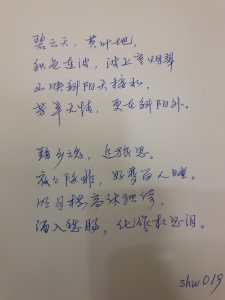 碧云天，黄叶地，
秋色连波，波上寒烟翠
山映斜阳天接水，
芳草无情，更在斜阳外。
黯乡魂，追旅思。
夜夜除非，好梦留人睡。
明月楼高休独倚，
酒入愁肠，化作相思泪。
shw019